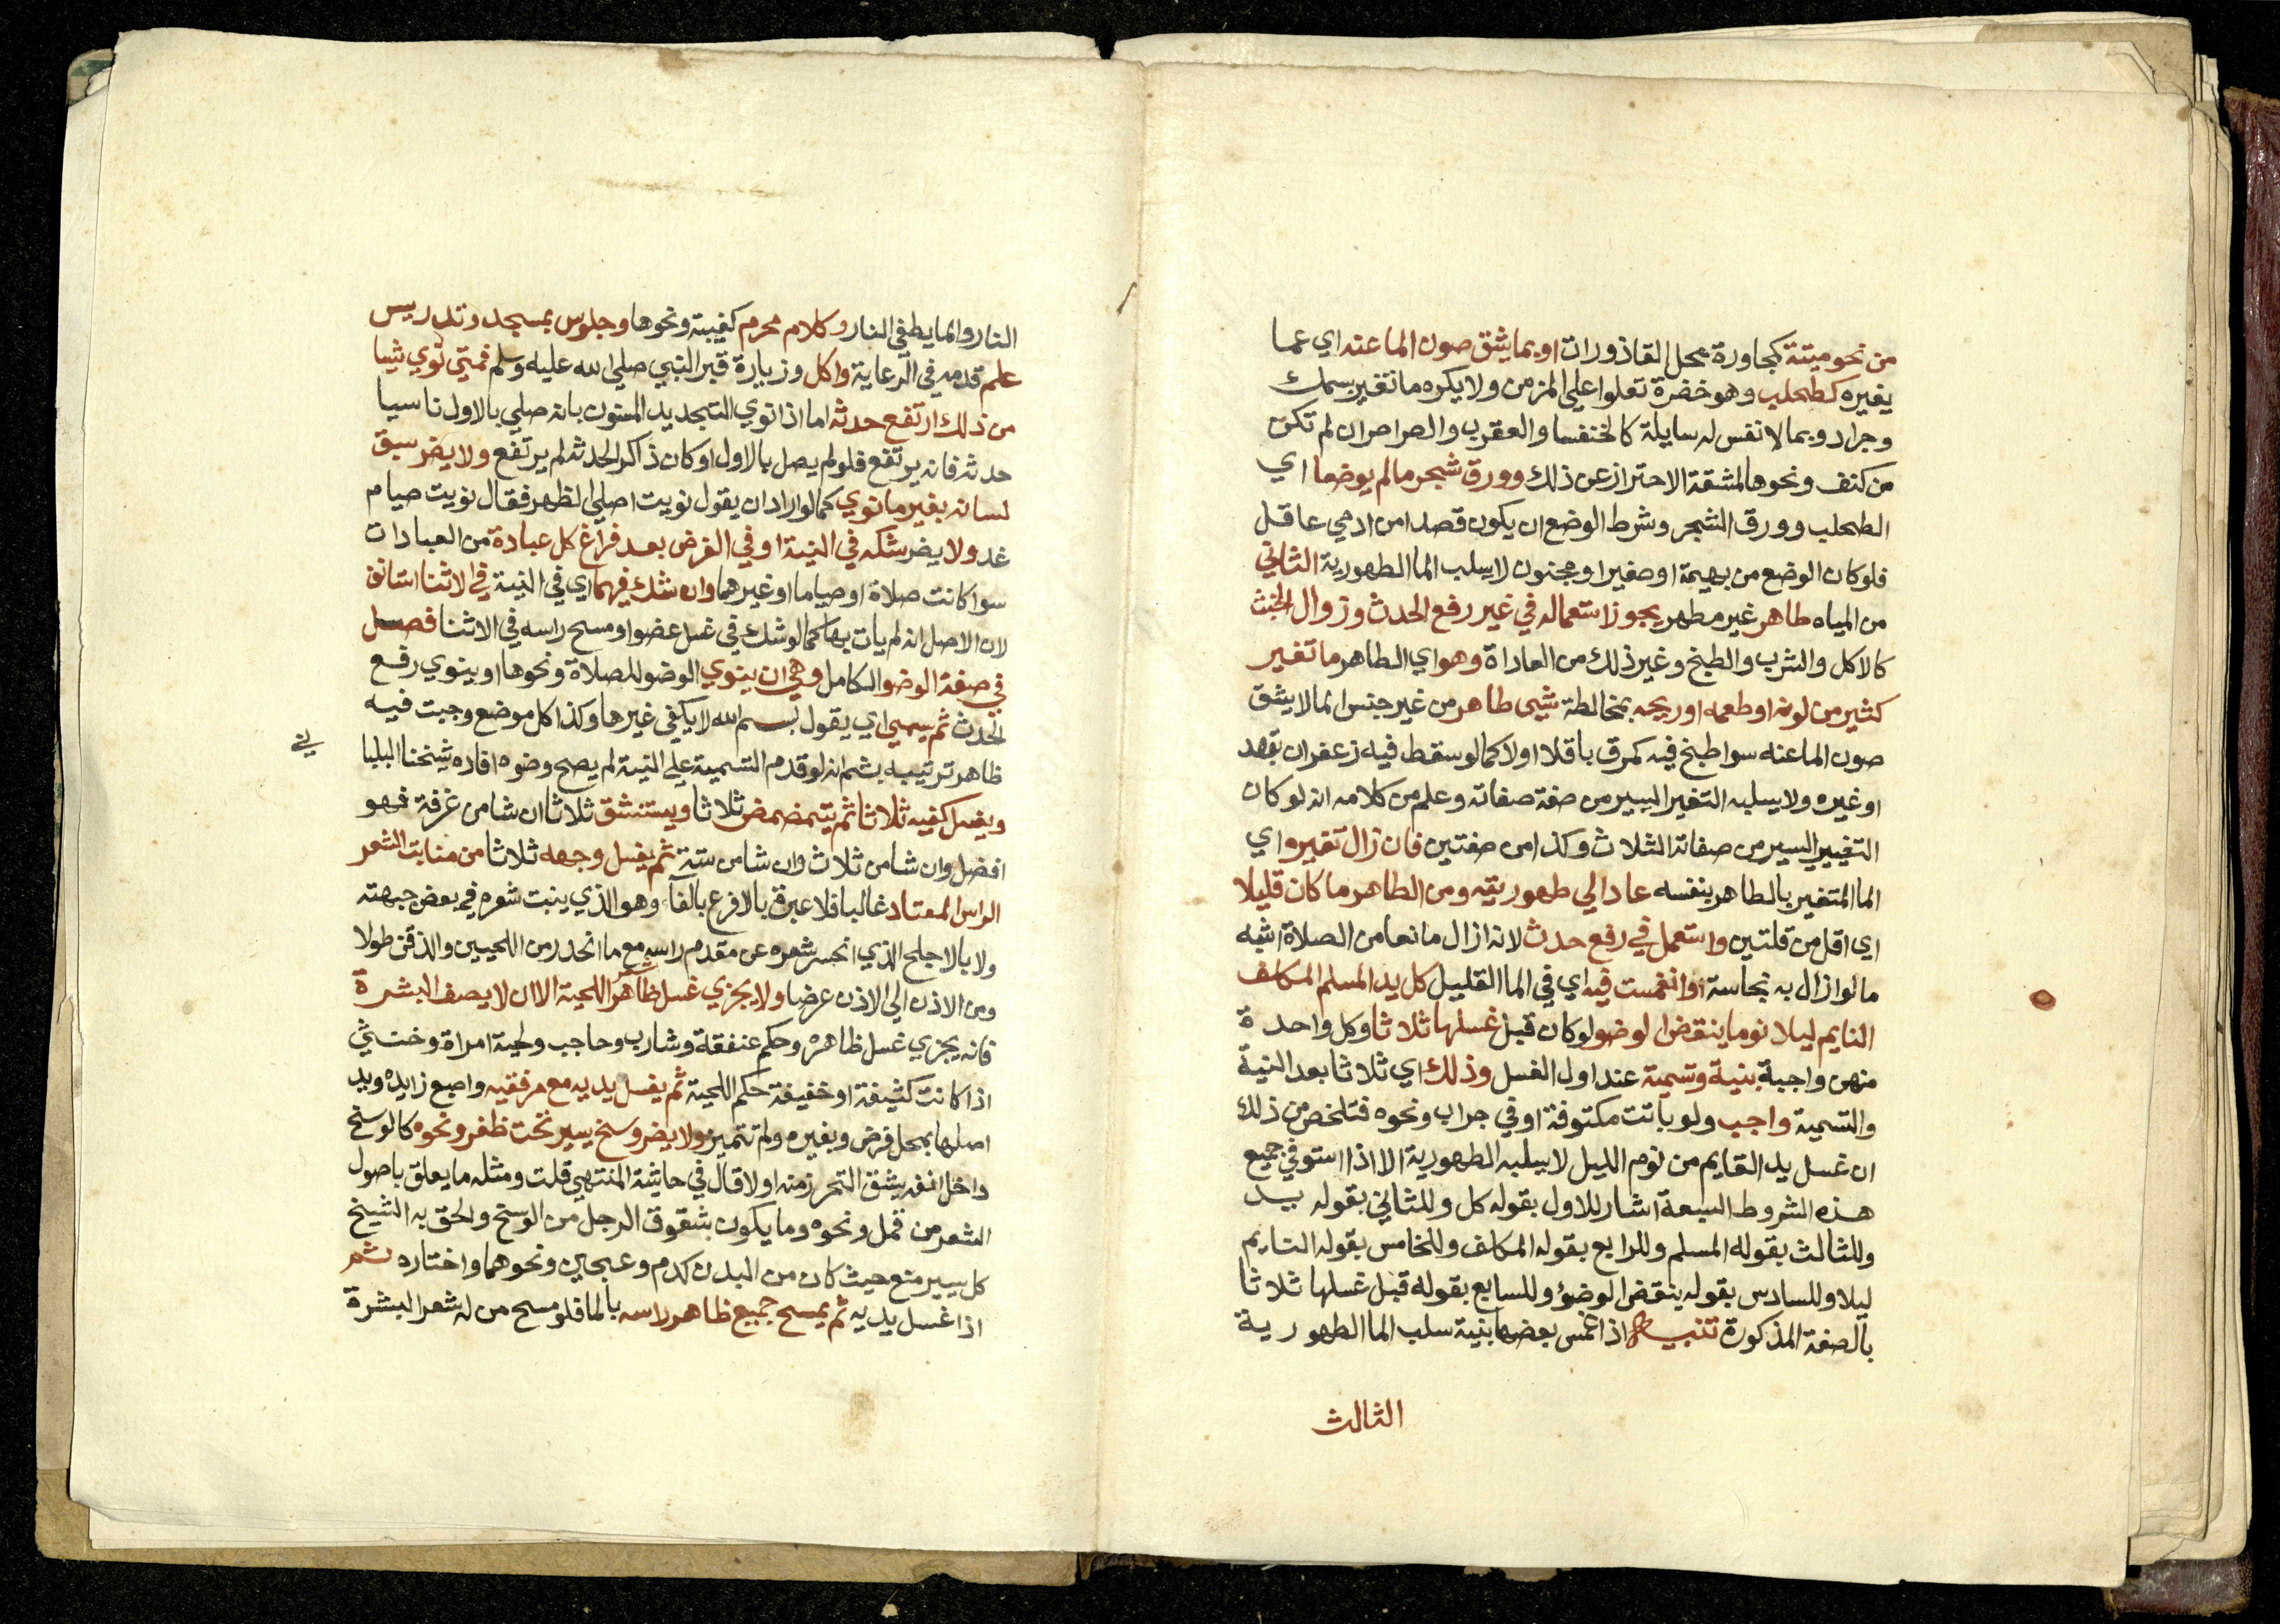 من نحو ميتة كمجاورة محل القاذورات او بما يشق صون الما عنه اي عما
يغيره كطحلب وهو خضرة تعلوا علي المزمن ولا يكره ما تغير بسمك
وجراد وبما لا نفس له سايلة كالخنفسا والعقرب والصراصر ان لم تكن
من كنف ونحوها لمشقة الاحتراز عن ذلك وورق شجر ما لم يوضعا اي
الطحلب وورق الشجر وشرط الوضع ان يكون قصدا من ادمي عاقل
فلو كان الوضع من بهيمة او صغير او مجنون لا يسلب الما الطهورية الثاني
من المياه طاهر غير مطهر يجوز استعماله في غير رفع الحدث وزوال الخبث
كالاكل والشرب والطبخ وغير ذلك من العاداة وهو اي الطاهر ما تغير
كثير من لونه او طعمه او ريحه بمخالطة شيي طاهر من غير جنس الما لا يشق
صون الما عنه سوا طبخ فيه كمرق باقلا اولا كما لو سقط فيه زعفران بقصد
او غيره ولا يسلبه التغير اليسير من صفة صفاته وعلم من كلامه انه لو كان
التغيير اليسير من صفاته الثلاث وكذا من صفتين فان زال تغيره اي
الما المتغير بالطاهر بنفسه عاد الي طهوريته ومن الطاهر ما كان قليلا
اي اقل من قلتين واستعمل في رفع حدث لانه ازال مانعا من الصلاة اشبه
ما لو ازال به نجاسة او انغمست فيه اي في الما القليل كل يد المسلم المكلف
النايم ليلا نوما ينقض الوضو لو كان قبل غسلها ثلاثا وكل واحدة
منهن واجبة بنية وتسمية عند اول الغسل وذلك اي ثلاثا بعد النية
والتسمية واجب ولو باتت مكتوفة او في جراب ونحوه فتلخص من ذلك
ان غسل يد القايم من نوم الليل لا يسلبه الطهورية الا اذا استوفي جميع
هذه الشروط السبعة اشار للاول بقوله كل وللثاني بقوله يد
وللثالث بقوله المسلم وللرابع بقوله المكلف وللخامس بقوله النايم
ليلا وللسادس بقوله ينقض الوضؤ وللسابع بقوله قبل غسلها ثلاثا
بالصفة المذكورة تنبيه اذا غمس بعضها بنية سلب الما الطهورية
الثالث
النار والما يطفي النار وكلام محرم كغيبة ونحوها وجلوس بمسجد وتدريس
علم قدمه في الرعاية واكل وزيارة قبر النبي صلي الله عليه وسلم فمتي نوي شيا
من ذلك ارتفع حدثه اما اذا نوي التجديد المسنون بانه صلي بالاول ناسيا
حدثه فانه يرتفع فلو لم يصل بالاول او كان ذاكر الحدثه لم يرتفع ولا يضر سبق
لسانه بغير ما نوي كما لو اراد ان يقول نويت اصلي الظهر فقال نويت صيام
غد ولا يضر شكه في النية او في الفرض بعد فراغ كل عبادة من العبادات
سوا كانت صلاة او صياما او غيرهما وان شك فيهما اي في النية في الاثنا استانف
لان الاصل انه لم يات بها كما لو شك في غسل عضو او مسح راسه في الاثنا فصل
في صفة الوضو الكامل وهي ان ينوي الوضو للصلاة ونحوها او ينوي رفع
الحدث ثم يسمي اي يقول بسم الله لا يكفي غيرها وكذا كل موضع وجبت فيه
ظاهر ترتيبه بثم انه لو قدم التسمية علي النية لم يصح وضوه افاده شيخنا البلبا
ني
ويغسل كفيه ثلاثا ثم يتمضمض ثلاثا ويستنشق ثلاثا ان شا من غرفة فهو
افضل وان شا من ثلاث وان شا من ستة ثم يغسل وجهه ثلاثا من منابت الشعر
الراس المعتاد غالبا فلا عبرة بالافرع بالفاء وهو الذي ينبت شعره في بعض جبهته
ولا بالاجلح الذي انحسر شعره عن مقدم راسه مع ما انحدر من اللحيين والذقن طولا
ومن الاذن الي الاذن عرضا ولا يجزي غسل ظاهر اللحية الا ان لا يصف البشرة
فانه يجزي غسل ظاهره وحكم عنفقة وشارب وحاجب ولحية امراة وخنثي
اذا كانت كثيفة او خفيفة حكم اللحية ثم يغسل يديه مع مرفقيه واصبع زايده ويد
اصلها بمحل فرض وبغيره ولم تتميز ولا يضر وسخ يسير تحت ظفر ونحوه كالوسخ
داخل انفه يشق التحرز منه اولا قال في حاشية المنتهي قلت ومثله ما يعلق باصول
الشعر من قمل ونحوه وما يكون بشقوق الرجل من الوسخ والحق به الشيخ
كل يسير منع حيث كان من البدن كدم وعجين ونحوهما واختاره ثم
اذا غسل يديه ثم يمسح جميع ظاهر راسه بالما فلو مسح من له شعر البشرة